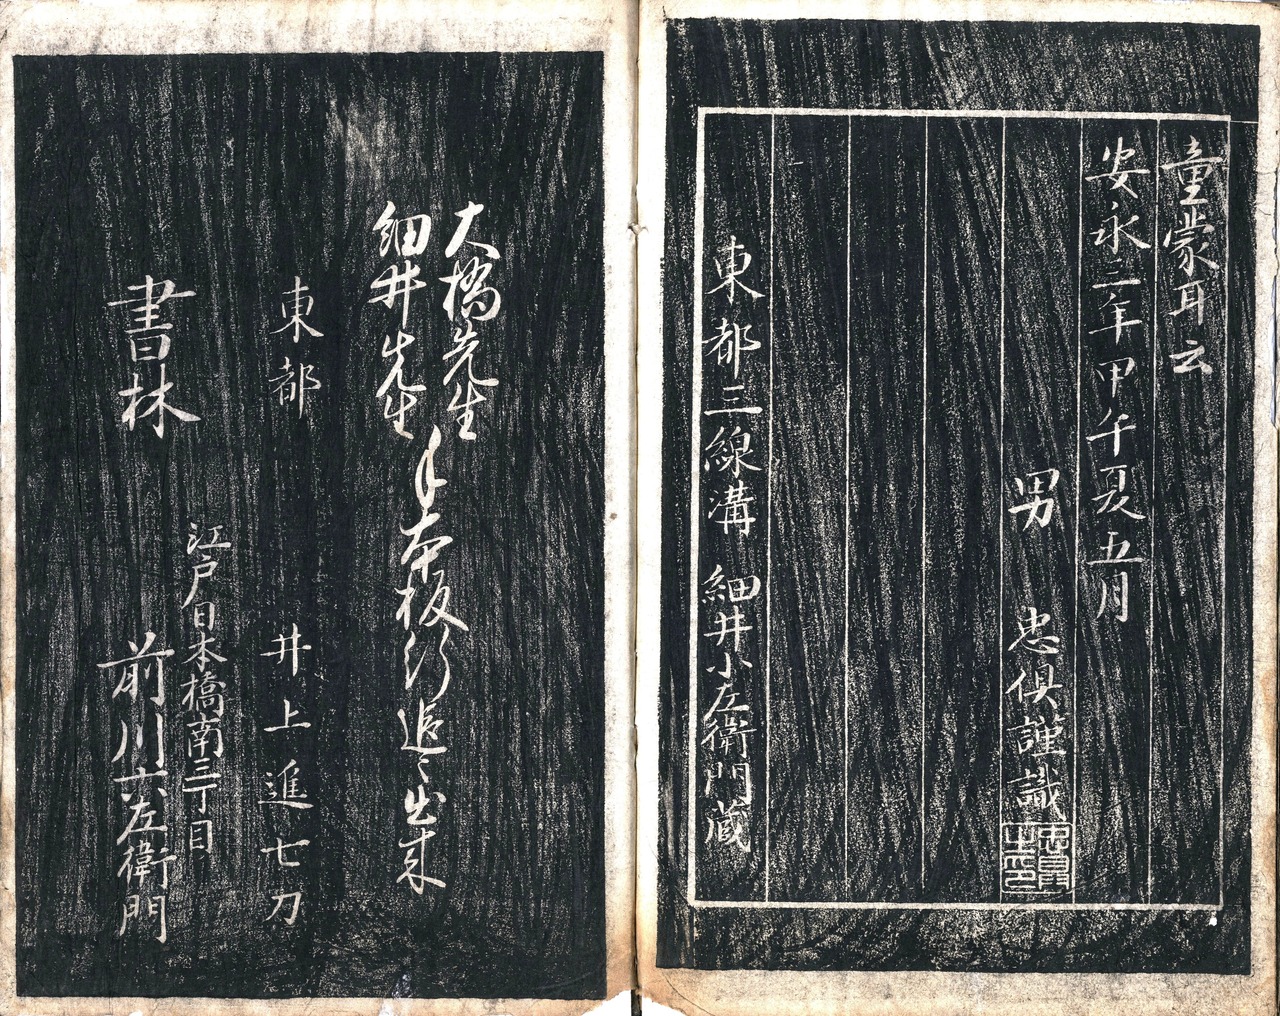 童蒙耳云
安永三年甲午夏五月
男 忠倶謹識
東都三線溝 細井小左衛門蔵
大橋先生
細井先生
手本板行追々出来
東都 井上進七刀
江戸日本橋南三丁目
書林 前川六左衛門